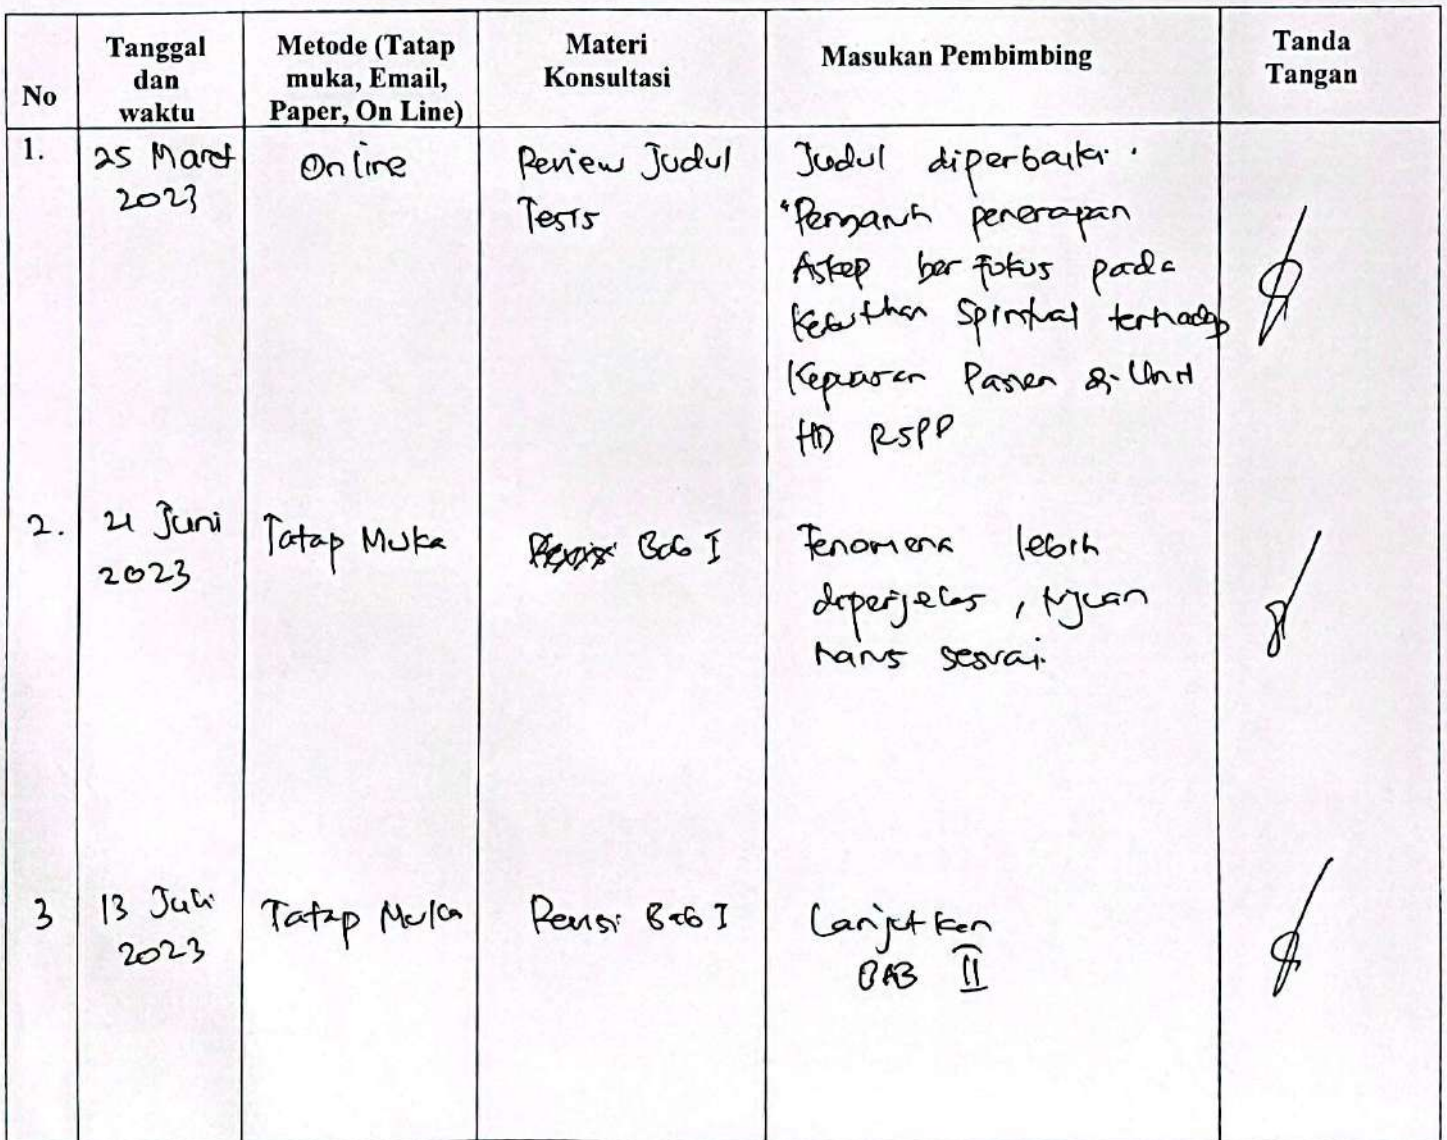 No
Tanggal
dan
waktu
Metode (Tatap
muka, Email,
Paper, On Line)
Materi
Konsultasi
Masukan Pembimbing
Tanda
Tangan
1.
25 Maret
2023
Online
Review Judul
Tesis
Judul diperbaiki :
"Pengaruh penerapan
Askep berfokus pada
Kebutuhan Spiritual terhadap
Kepuasan Pasien di Unit
HD RSPP
2.
21 Juni
2023
Tatap Muka
Bab I
Fenomena lebih
diperjelas, tujuan
harus sesuai.
3
13 Juli
2023
Tatap Muka
Revisi Bab I
Lanjutkan
BAB II